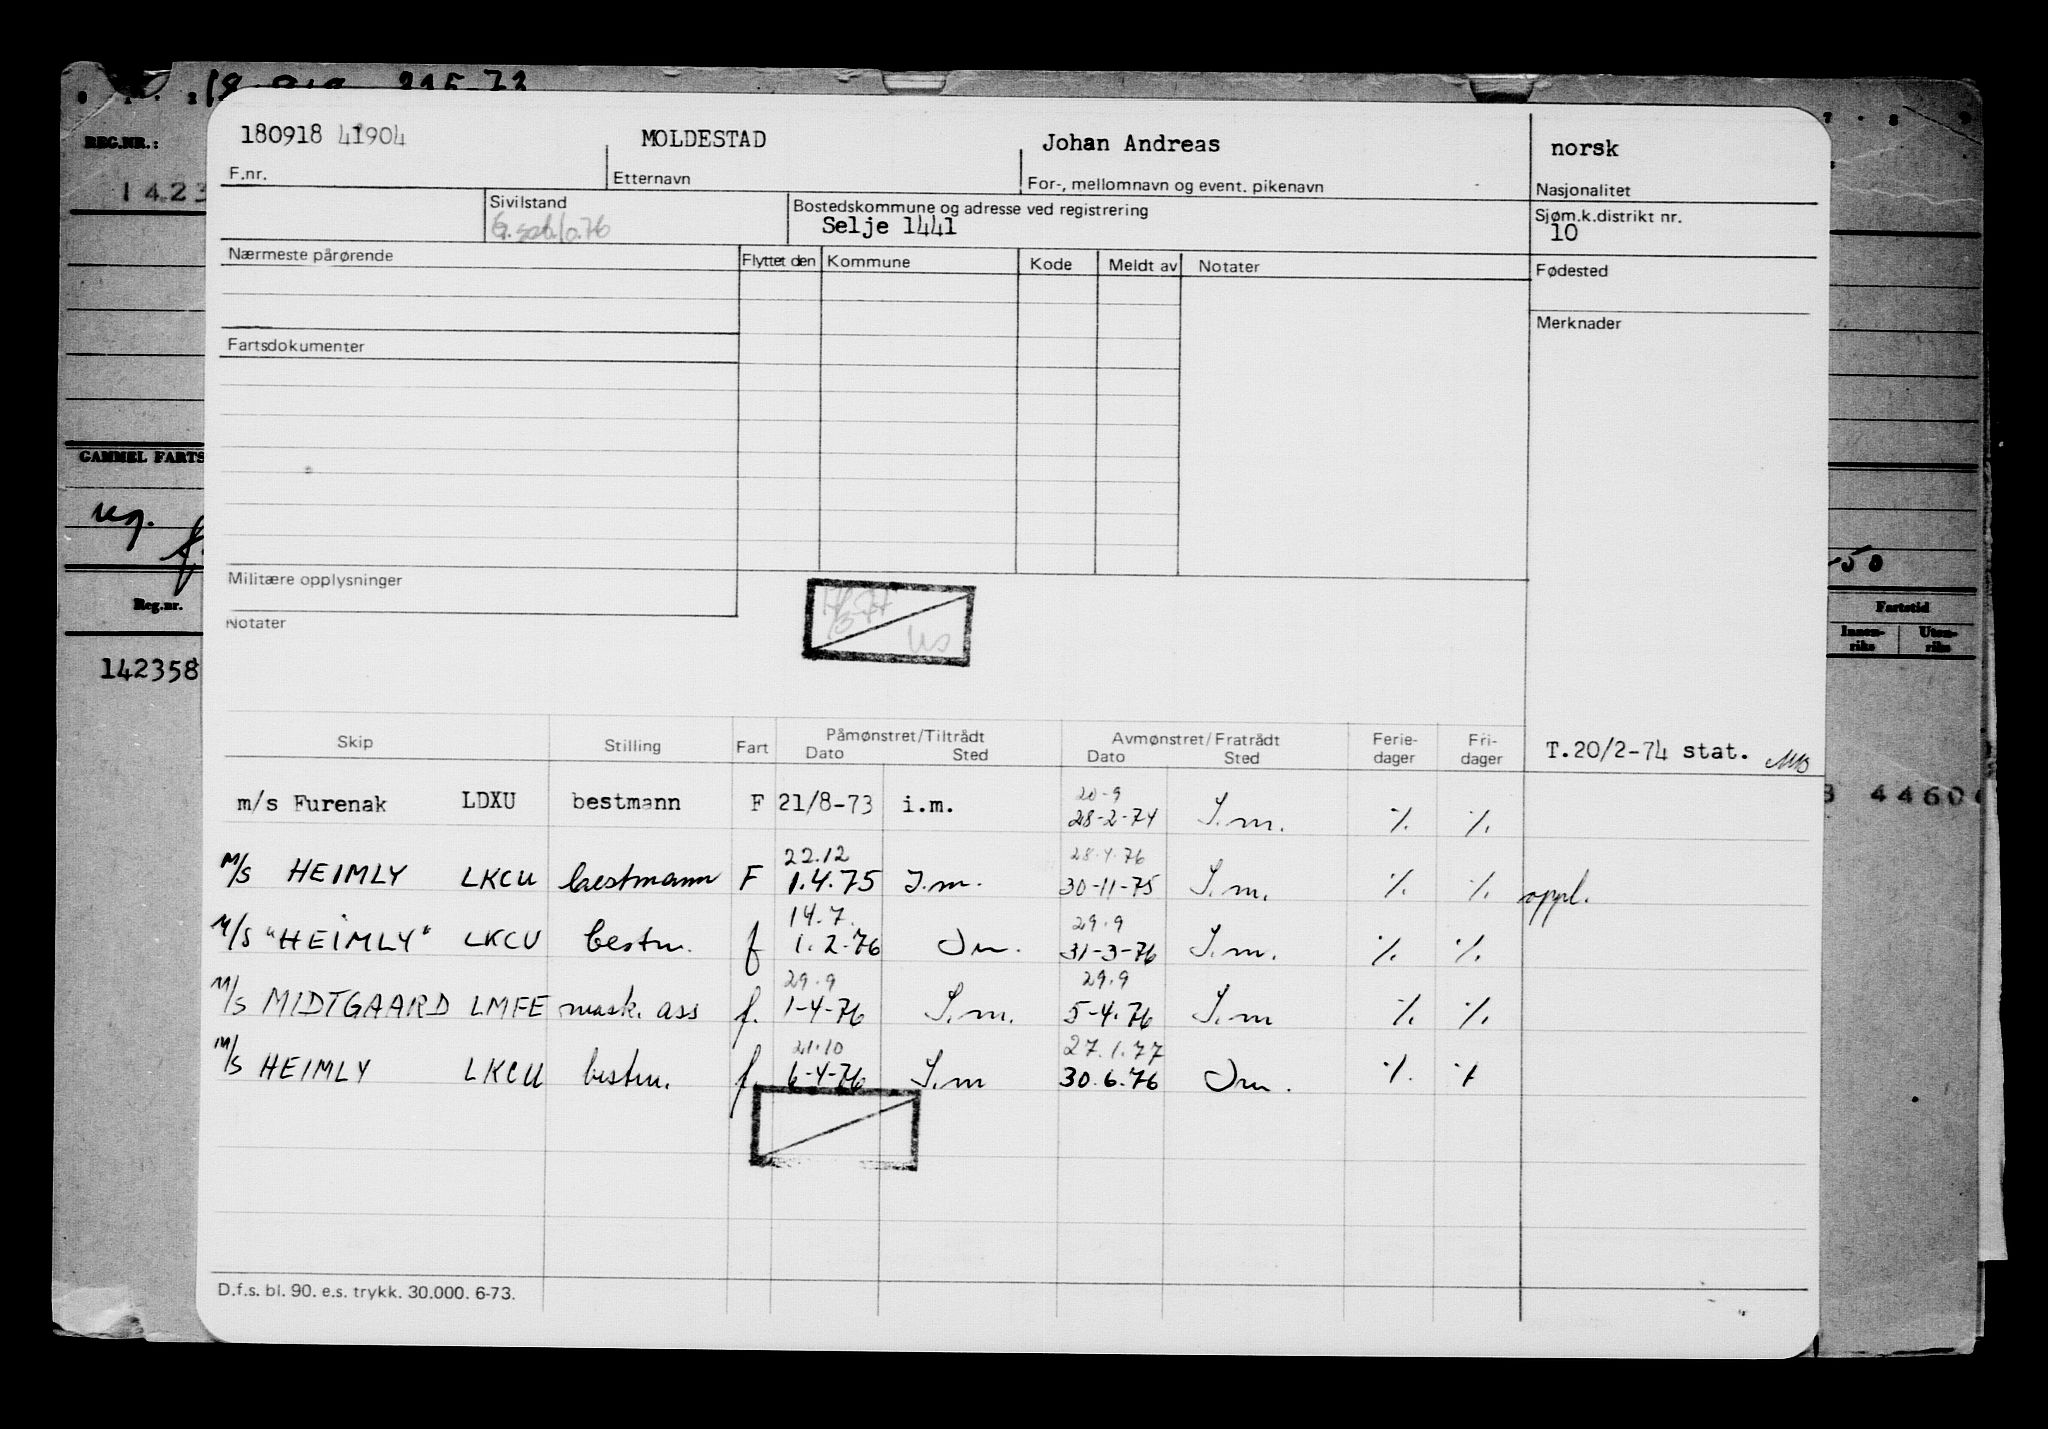 REG.NR.:
1423
180918 41904 MOLDESTAD Johan Andreas norsk
F.nr. Etternavn For-, mellomnavn og event. pikenavn Nasjonalitet
Sivilstand Bostedskommune og adresse ved registrering Sjøm.k.distrikt nr.
Selje 1441 10
Nærmeste pårørende Flyttet den Kommune Kode Meldt av Notater Fødested
Merknader
Fartsdokumenter
GAMMEL FARTS
Militære opplysninger
Reg.nr. Fartstid
Notater Innen-riks Uten-riks
142358
Skip Stilling Fart Påmønstret/Tiltrådt Avmønstret/Fratrådt Ferie-dager Fri-dager T.20/2-74 stat.
Dato Sted Dato Sted
20-9
m/s Furenak LDXU bestmann F 21/8-73 i.m. 28-2-74 I.m. % %
22.12 28.4.76
M/S HEIMLY LKCU bestmann F 1.4.75 I.m. 30-11-75 I.m. % % oppl.
14.7. 29.9
M/S "HEIMLY" LKCU bestm. f 1.2-76 Im. 31-3-76 I.m. % %
29.9 29.9
M/S MIDTGAARD LMFE mask. ass f. 1-4-76 I.m. 5-4.76 I.m % %
21.10 27.1.77
M/S HEIMLY LKCU bestm. f. 6-4-76 I.m 30.6.76 Im. % %
D.f.s. bl. 90. e.s. trykk. 30.000. 6-73.